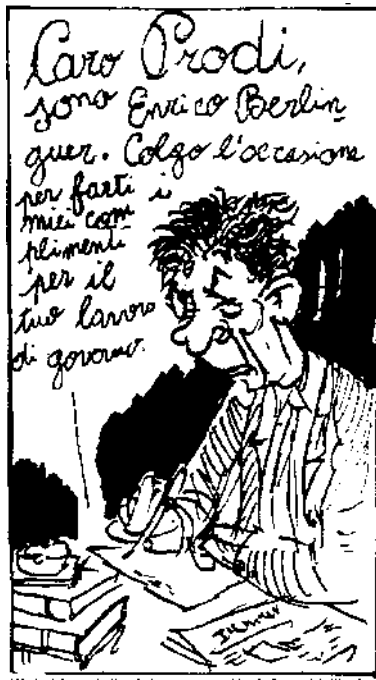 Caro Prodi,
sono Enrico Berlin
guer. Colgo l'occasione
per farti i
miei com
plimenti
per il
tuo lavoro
di governo.